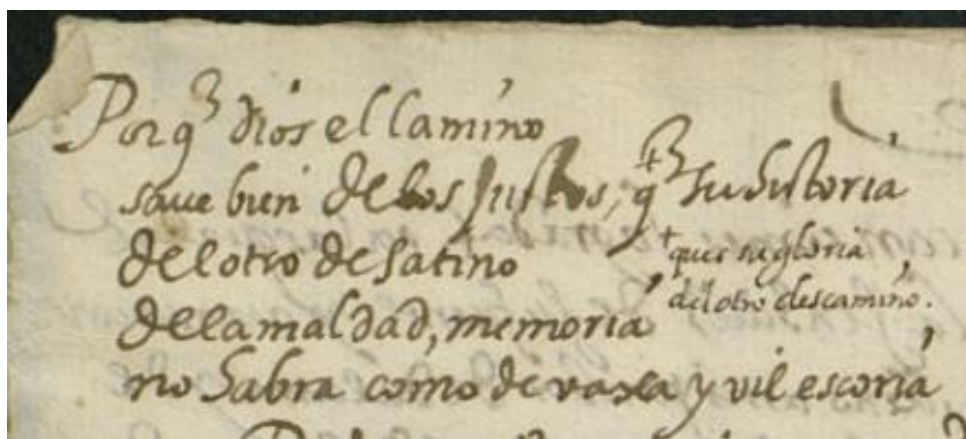 Porq̃ dios el camino
saue bien de los Justos, + q̃ su historia
del otro desatino
+ que su gloria,
del otro descamino.
de la maldad, memoria
no habra como de vaxa y vil escoria,